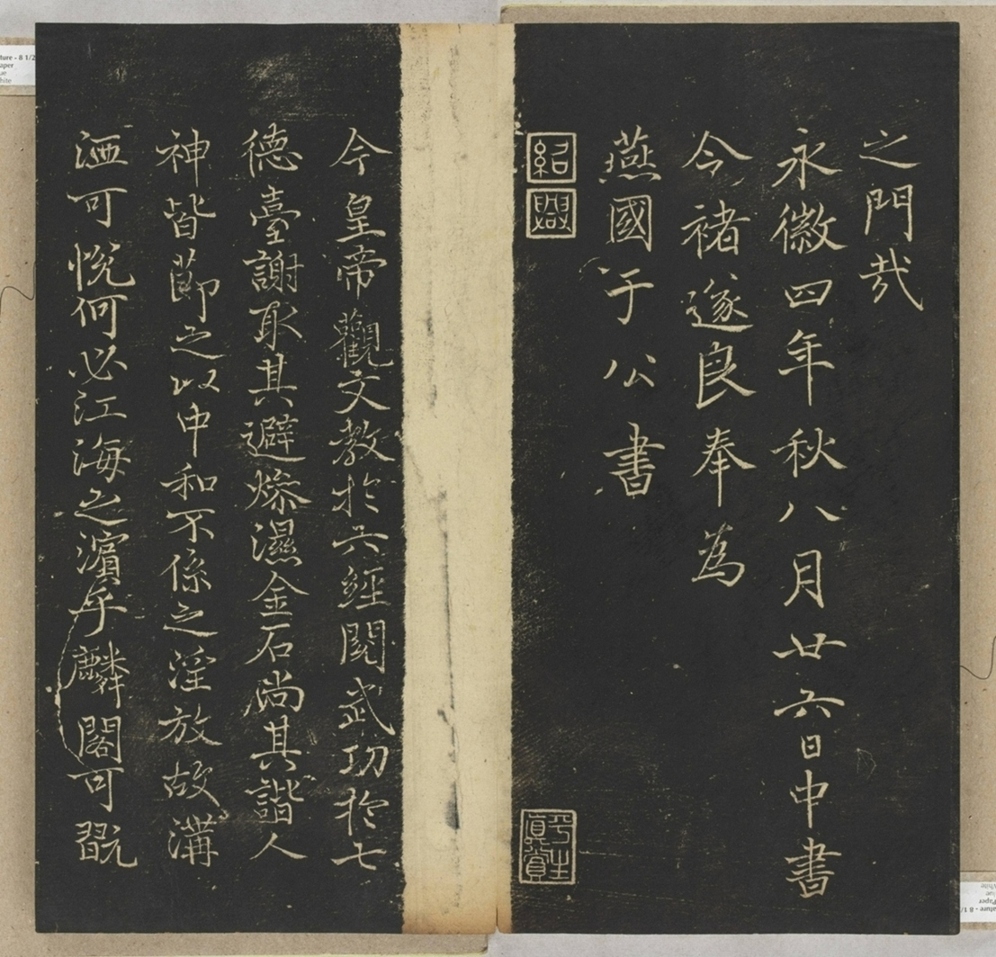 之門哉
永徽四年秋八月廿六日中書
今褚遂良奉為
燕國于公書
紹興
平生真賞
今皇帝觀文教於六經閱武功於七
德臺謝取其避燥濕金石尚其諧人
神皆莭之以中和不係之淫放故溝
洒可悅何必江海之濱乎麟閣可翫